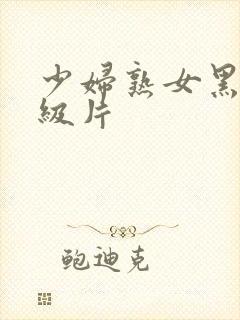 少婦熟女黑
級片
鲍迪克